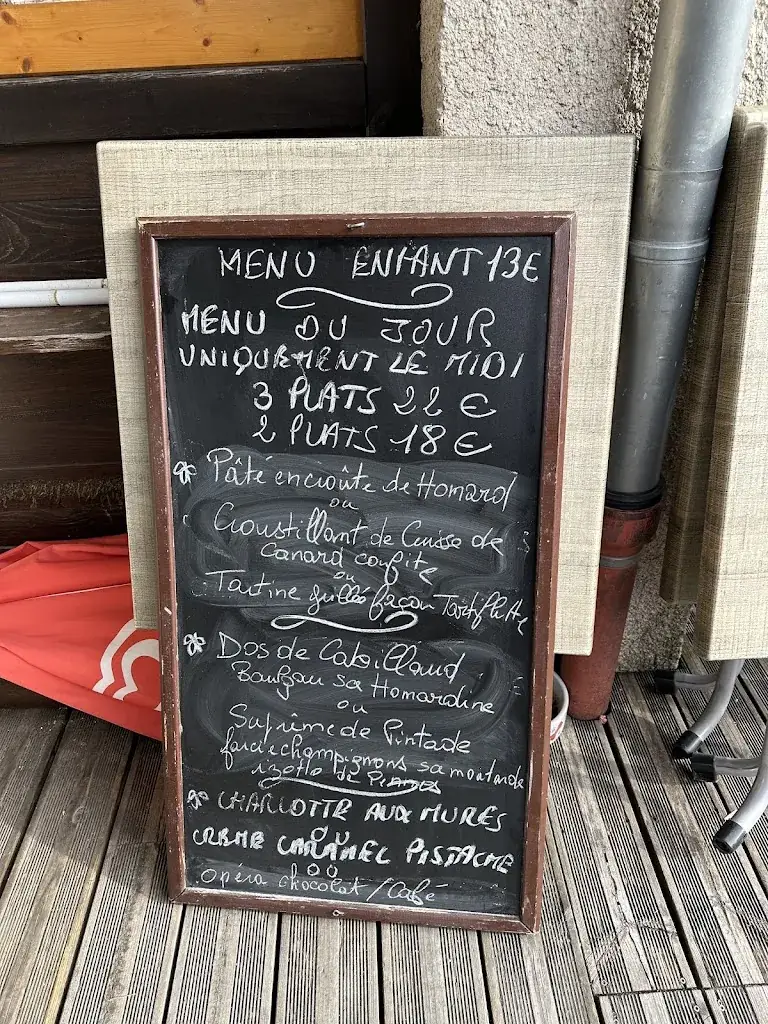 MENU ENFANT 13€
MENU DU JOUR
UNIQUEMENT LE MIDI
3 PLATS 22 €
2 PLATS 18 €
Pâté en croûte de Homard
ou
Croustillant de Cuisse de
Canard confite
ou
Tartine grillée façon Tartiflette
Dos de Cabillaud
sa Homardine
ou
Suprême de Pintade
farcie champignons sa moutarde
rizotto de
CHARLOTTE AUX MURES
OU
CREME CARAMEL PISTACHE
OU
Opéra chocolat / Café